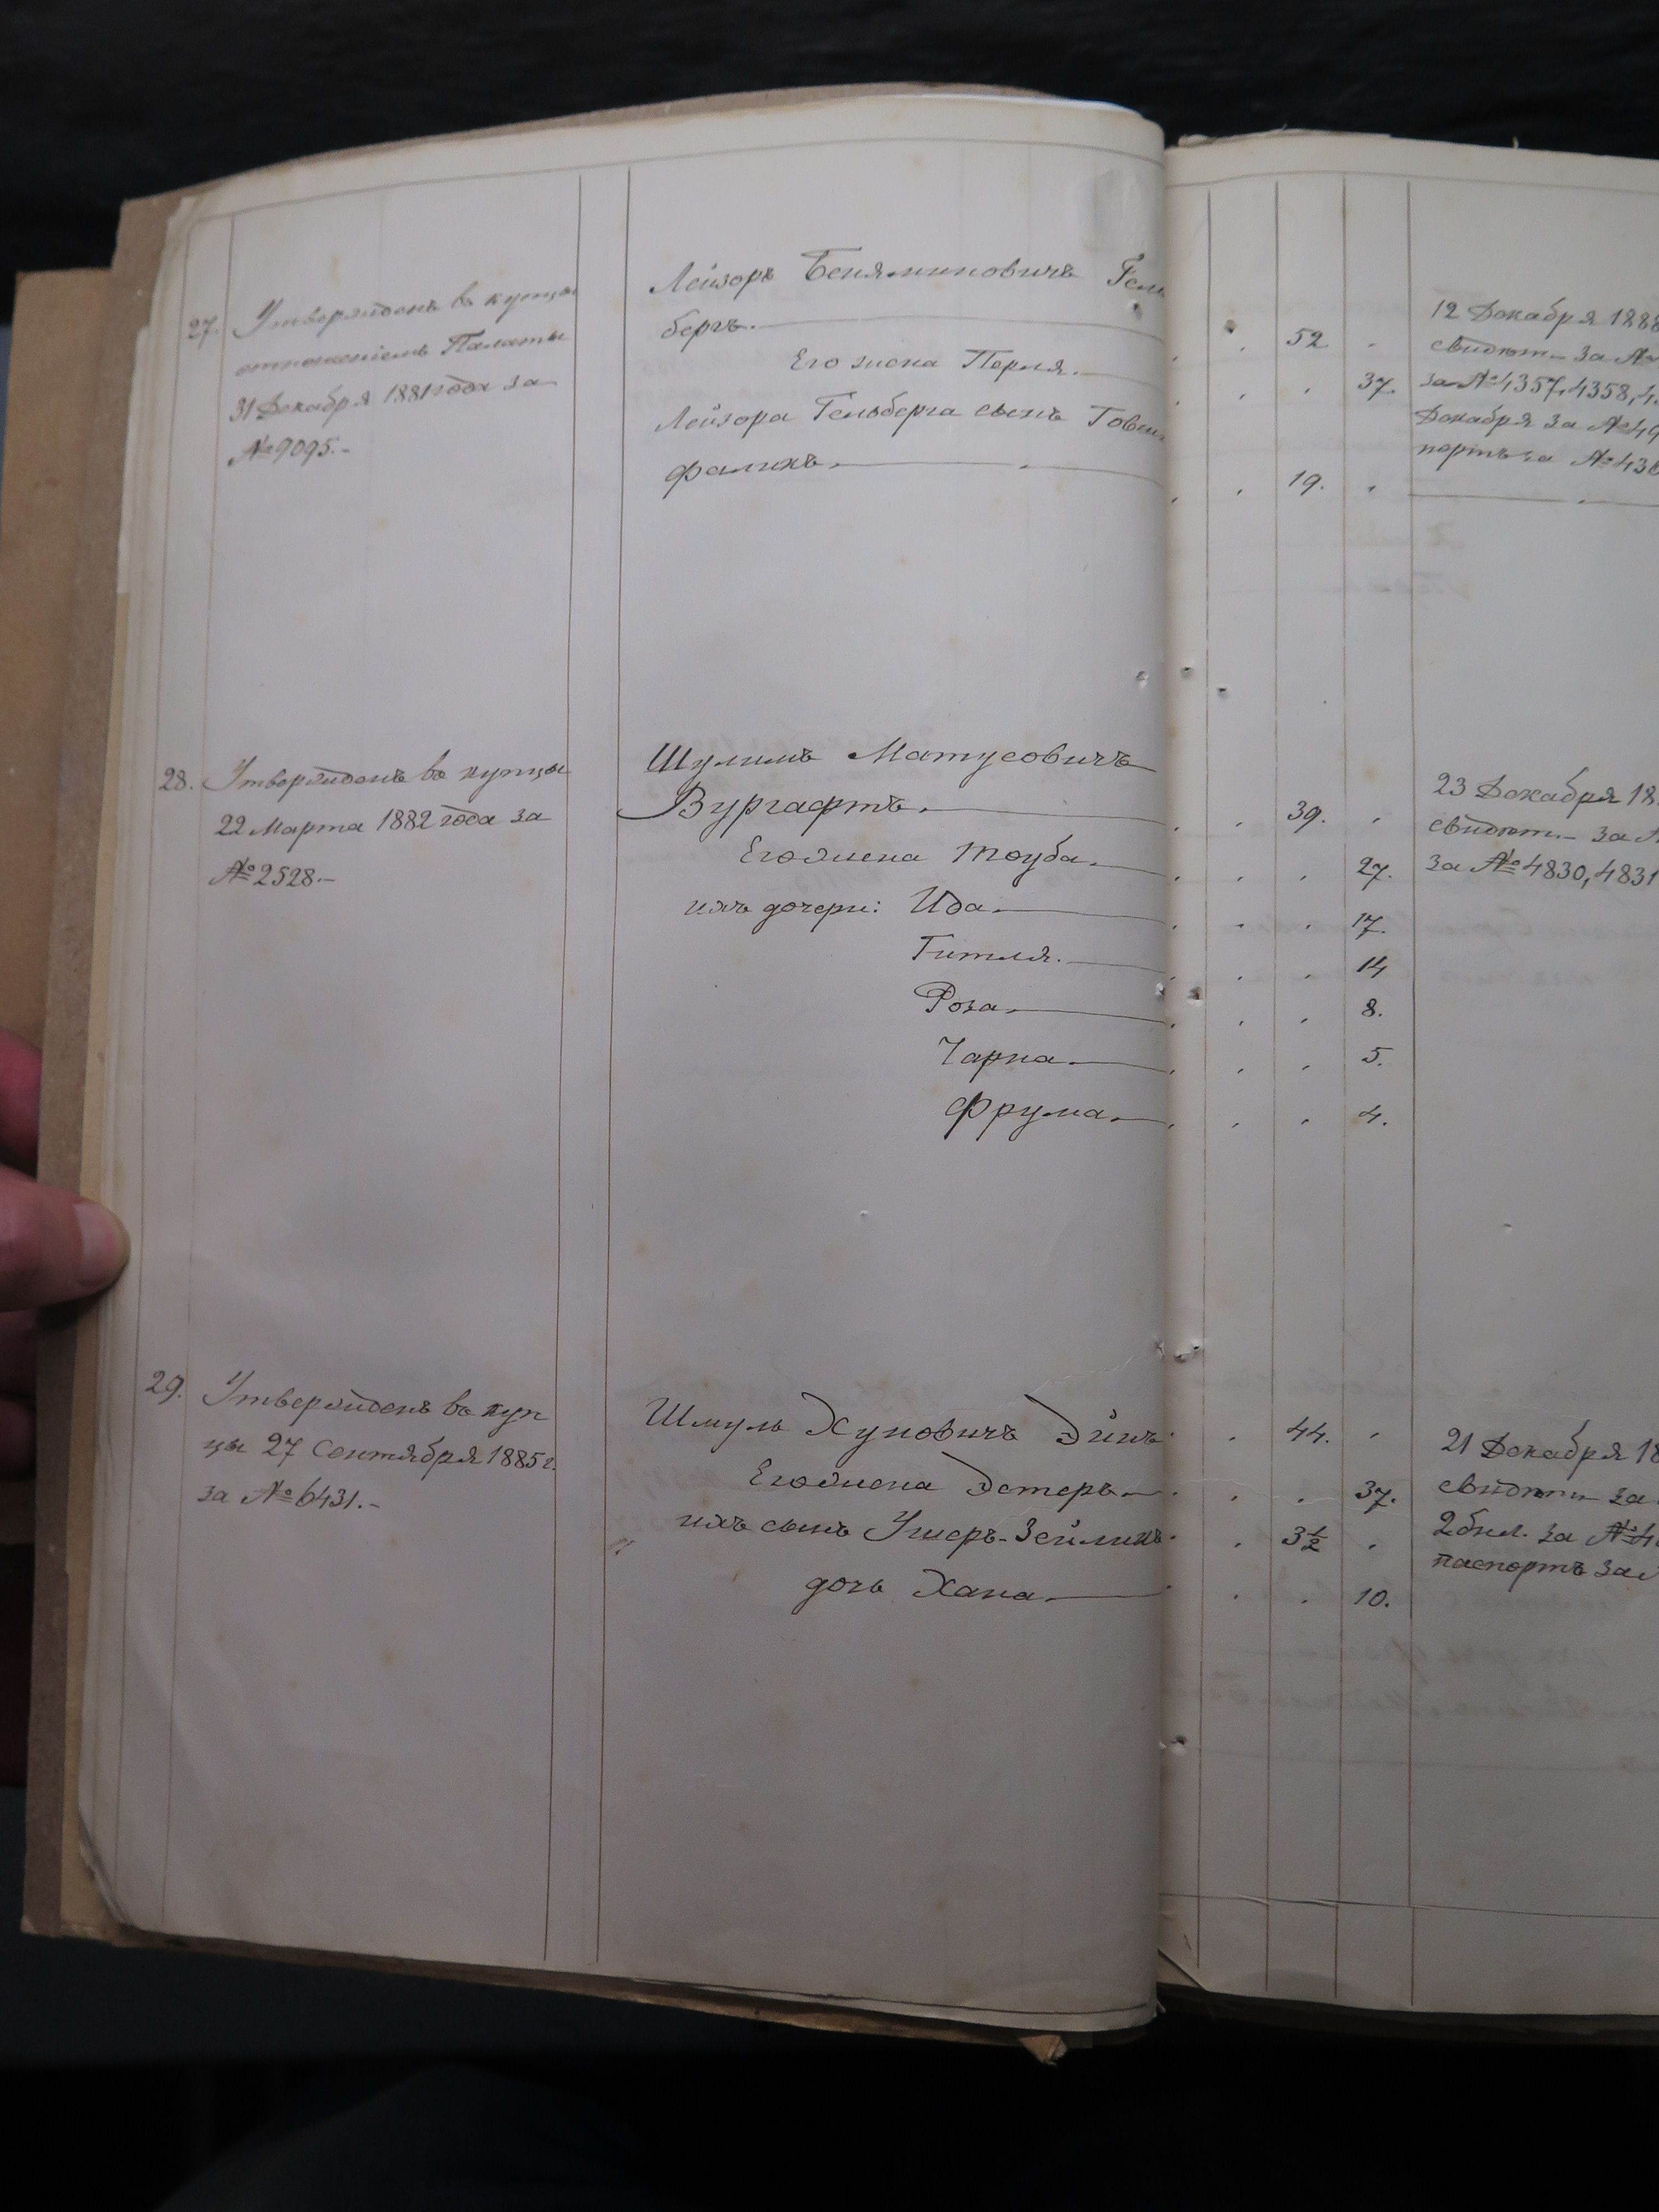 27. Утвержденъ въ купцы
отношеніемъ Палаты
31 Декабря 1881 года за
№ 9095.-
Лейзоръ Беняминовичъ Гель
бергъ.
Его жена Перля.
Лейзора Гельберга сынъ Говши
фаликъ.
52.
37.
19.
12 Декабря 1888
свидѣт. за №
за № 4357, 4358, 4
Декабря за № 49
портъ за № 436
28. Утвержденъ въ купцы
22 Марта 1882 года за
№ 2528.-
Шулимъ Матусовичъ
Вургафтъ.
Его жена Тоуба.
ихъ дочери: Ида
Гитля.
Роза
Чарна
Фрума
39.
27.
17.
14
8.
5.
4.
23 Декабря 18
свидѣт. за №
за № 4830, 4831
29. Утвержденъ въ куп
цы 27 Сентября 1885 г.
за № 6431.-
Шмуль Хуновичъ Эйнъ
Его жена Эстеръ
ихъ сынъ Ушеръ-Зейликъ
дочь Хана
44.
37.
3½
10.
21 Декабря 18
свидѣт. за
2 бил. за № 4
паспортъ за